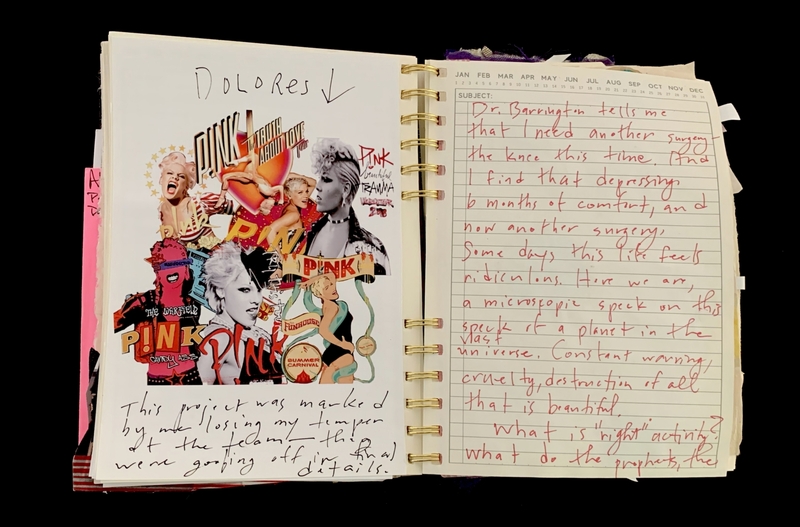 DOLORES ↓
P!NK
THE TRUTH
ABOUT LOVE
P!NK
Beautiful
TRAUMA
P!NK
P!NK
THE WARFIELD
P!NK
P!NK
FUNHOUSE
SUMMER
CARNIVAL
This project was marked
by me losing my temper
at the team — they
were goofing off in final
details.
JAN FEB MAR APR MAY JUN JUL AUG SEP OCT NOV DEC
SUBJECT:
Dr. Barrington tells me
that I need another surgery—
the knee this time. And
I find that depressing.
6 months of comfort, and
now another surgery.
Some days this life feels
ridiculous. Here we are,
a microscopic speck on this
speck of a planet in the
vast
universe. Constant warring,
cruelty, destruction of all
that is beautiful.
What is "right" activity?
What do the prophets, the